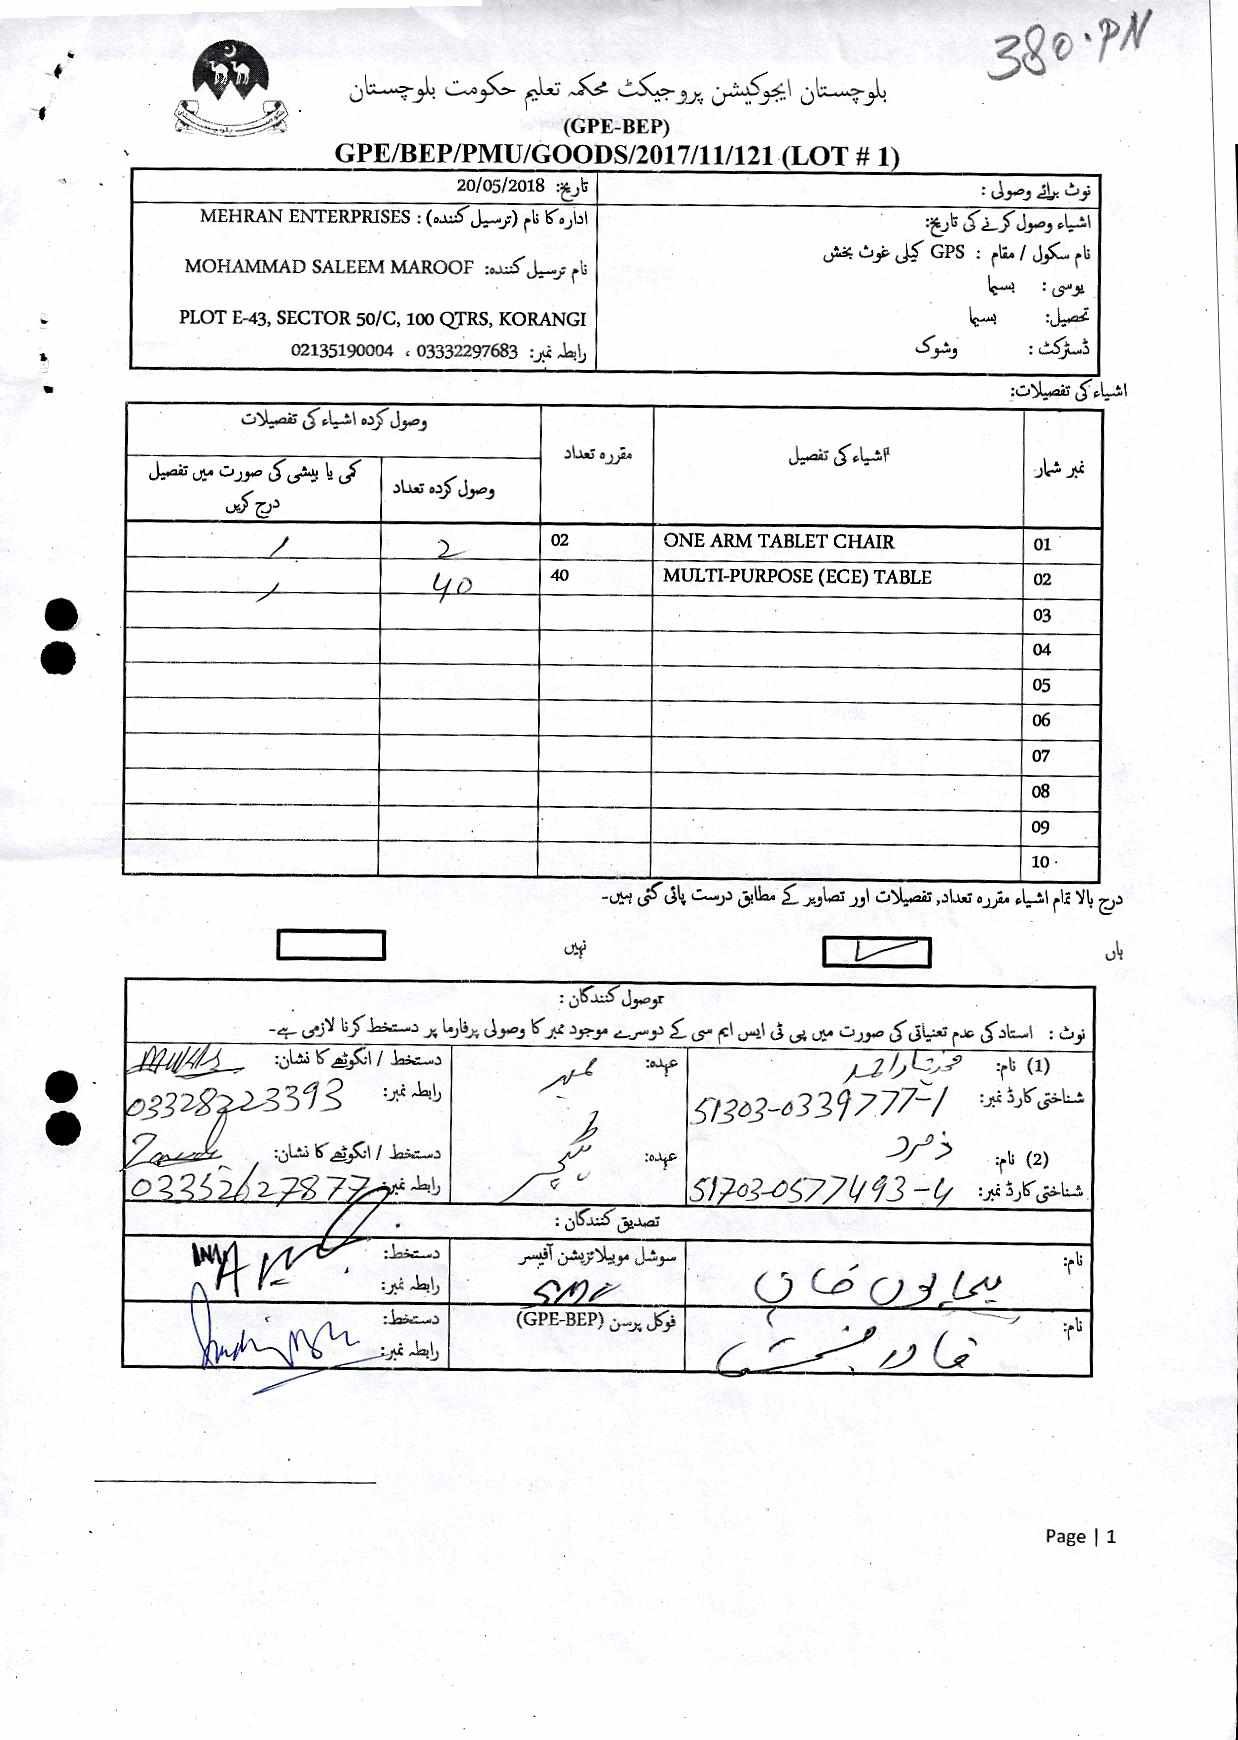 380.PN
بلوچستان ایجوکیشن پروجیکٹ محکمہ تعلیم حکومت بلوچستان
(GPE-BEP)
GPE/BEP/PMU/GOODS/2017/11/121 (LOT # 1)
نوٹ برائے وصولی :
تاریخ: 20/05/2018
اشیاء وصول کرنے کی تاریخ:
ادارہ کا نام (ترسیل کنندہ) : MEHRAN ENTERPRISES
نام سکول / مقام : GPS کیلی غوث بخش
نام ترسیل کنندہ: MOHAMMAD SALEEM MAROOF
یوسی : بسیما
تحصیل: بسیما
PLOT E-43, SECTOR 50/C, 100 QTRS, KORANGI
ڈسٹرکٹ : وشوک
رابطہ نمبر: 03332297683 ، 02135190004
اشیاء کی تفصیلات:
نمبر شمار اشیاء کی تفصیل مقررہ تعداد وصول کردہ اشیاء کی تفصیلات
وصول کردہ تعداد کمی یا بیشی کی صورت میں تفصیل درج کریں
01 ONE ARM TABLET CHAIR 02 2 /
02 MULTI-PURPOSE (ECE) TABLE 40 40 /
03
04
05
06
07
08
09
10
درج بالا تمام اشیاء مقررہ تعداد, تفصیلات اور تصاویر کے مطابق درست پائی گئی ہیں۔
ہاں نہیں
وصول کنندگان :
نوٹ : استاد کی عدم تعیناتی کی صورت میں پی ٹی ایس ایم سی کے دوسرے موجود ممبر کا وصولی پرفارما پر دستخط کرنا لازمی ہے۔
(1) نام: مختار احمد عہدہ: ممبر دستخط / انگوٹھے کا نشان:
شناختی کارڈ نمبر: 51303-0339777-1 رابطہ نمبر: 03328223393
(2) نام: زمرد عہدہ: ٹیچر دستخط / انگوٹھے کا نشان:
شناختی کارڈ نمبر: 51703-0577493-4 رابطہ نمبر: 03352627877
تصدیق کنندگان :
نام: ہمایوں خان سوشل موبیلائزیشن آفیسر دستخط:
رابطہ نمبر:
نام: قادر بخش فوکل پرسن (GPE-BEP) دستخط:
رابطہ نمبر:
Page | 1